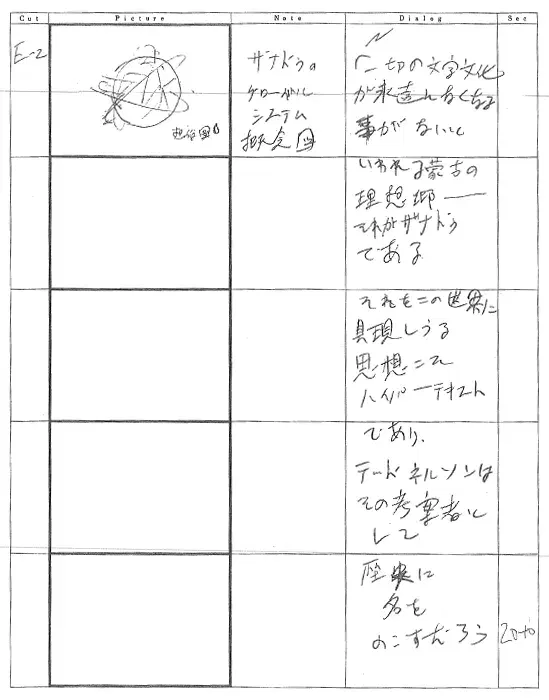 Cut Picture Note Dialog Sec
E-2
ザナドゥの
グローバル
システム
概念図
N
「一切の文字文化
が永遠になくなる
事がないと
いわれる蒙古の
理想郷――
それがザナドゥ
である
それをこの世界に
具現しうる
思想こそ
ハイパーテキスト
であり、
テッド ネルソンは
その考案者と
して
歴史に
名を
のこすだろう
20+0